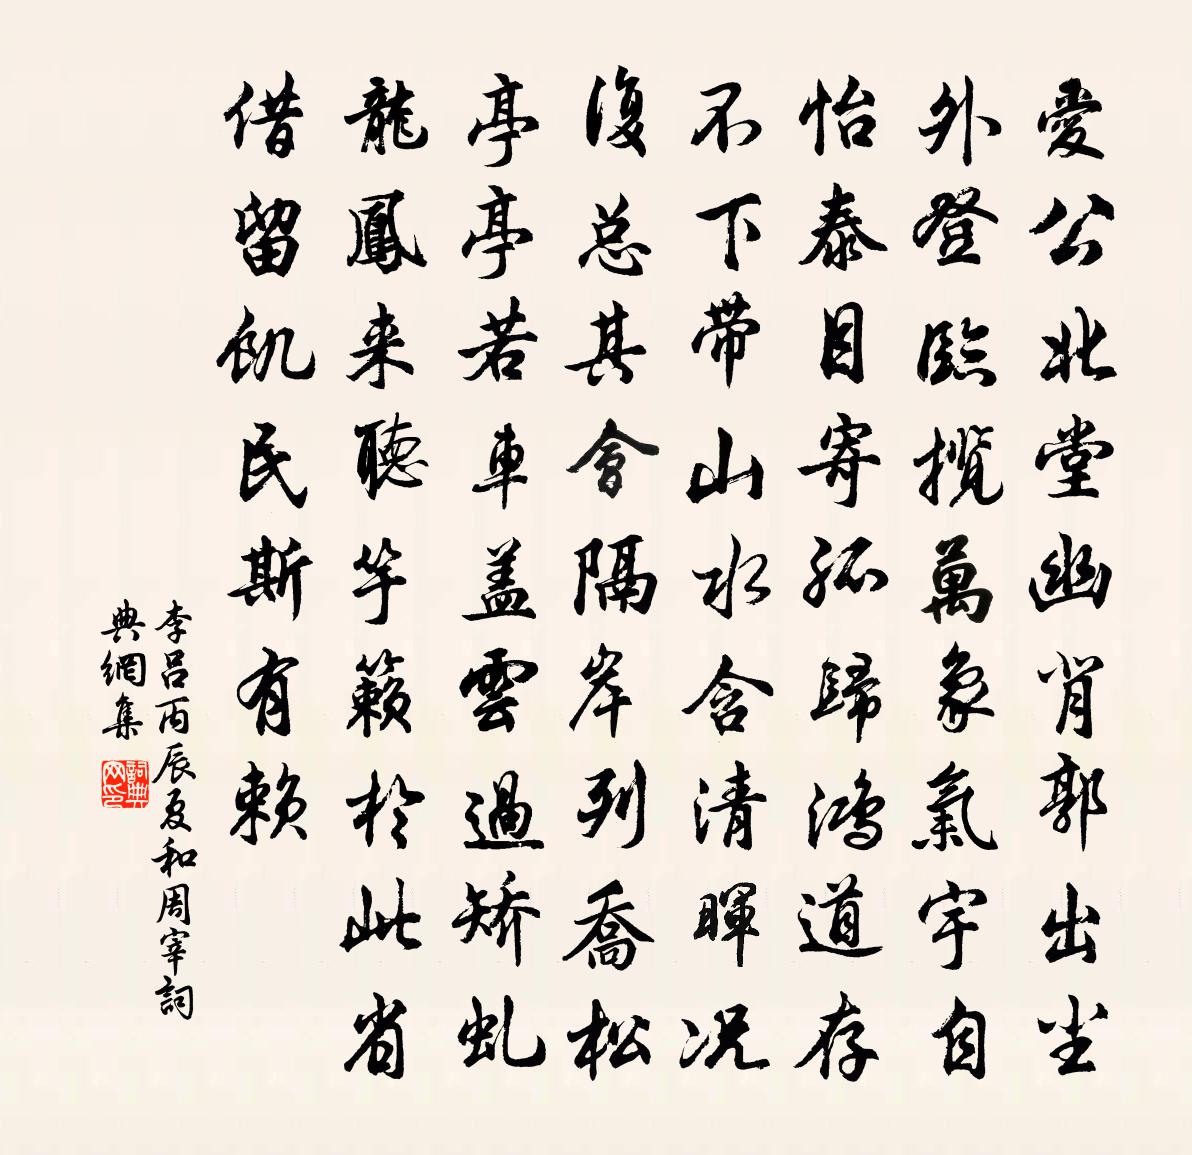 愛公北堂幽肖郭出尘
外登臨揽萬象氣宇自
怡泰目寄孤歸鴻道存
不下带山水含清暉况
復总其會隔岸列喬松
亭亭若車盖雲過矫虬
龍鳳来聽竽籁於此省
借留飢民斯有赖
李呂丙辰夏和周宰詞
典網集
詞典网印